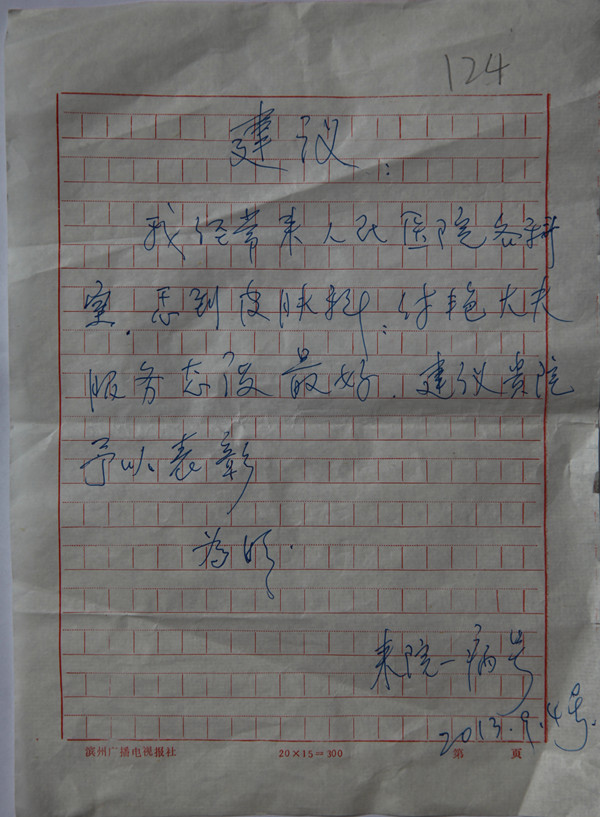 124
建议:
我经常来人民医院各科
室.感到皮肤科:付艳大夫
服务态度最好.建议贵院
予以表彰
为盼.
来院一病号
2013.9.4号.
滨州广播电视报社 20×15=300 第 页